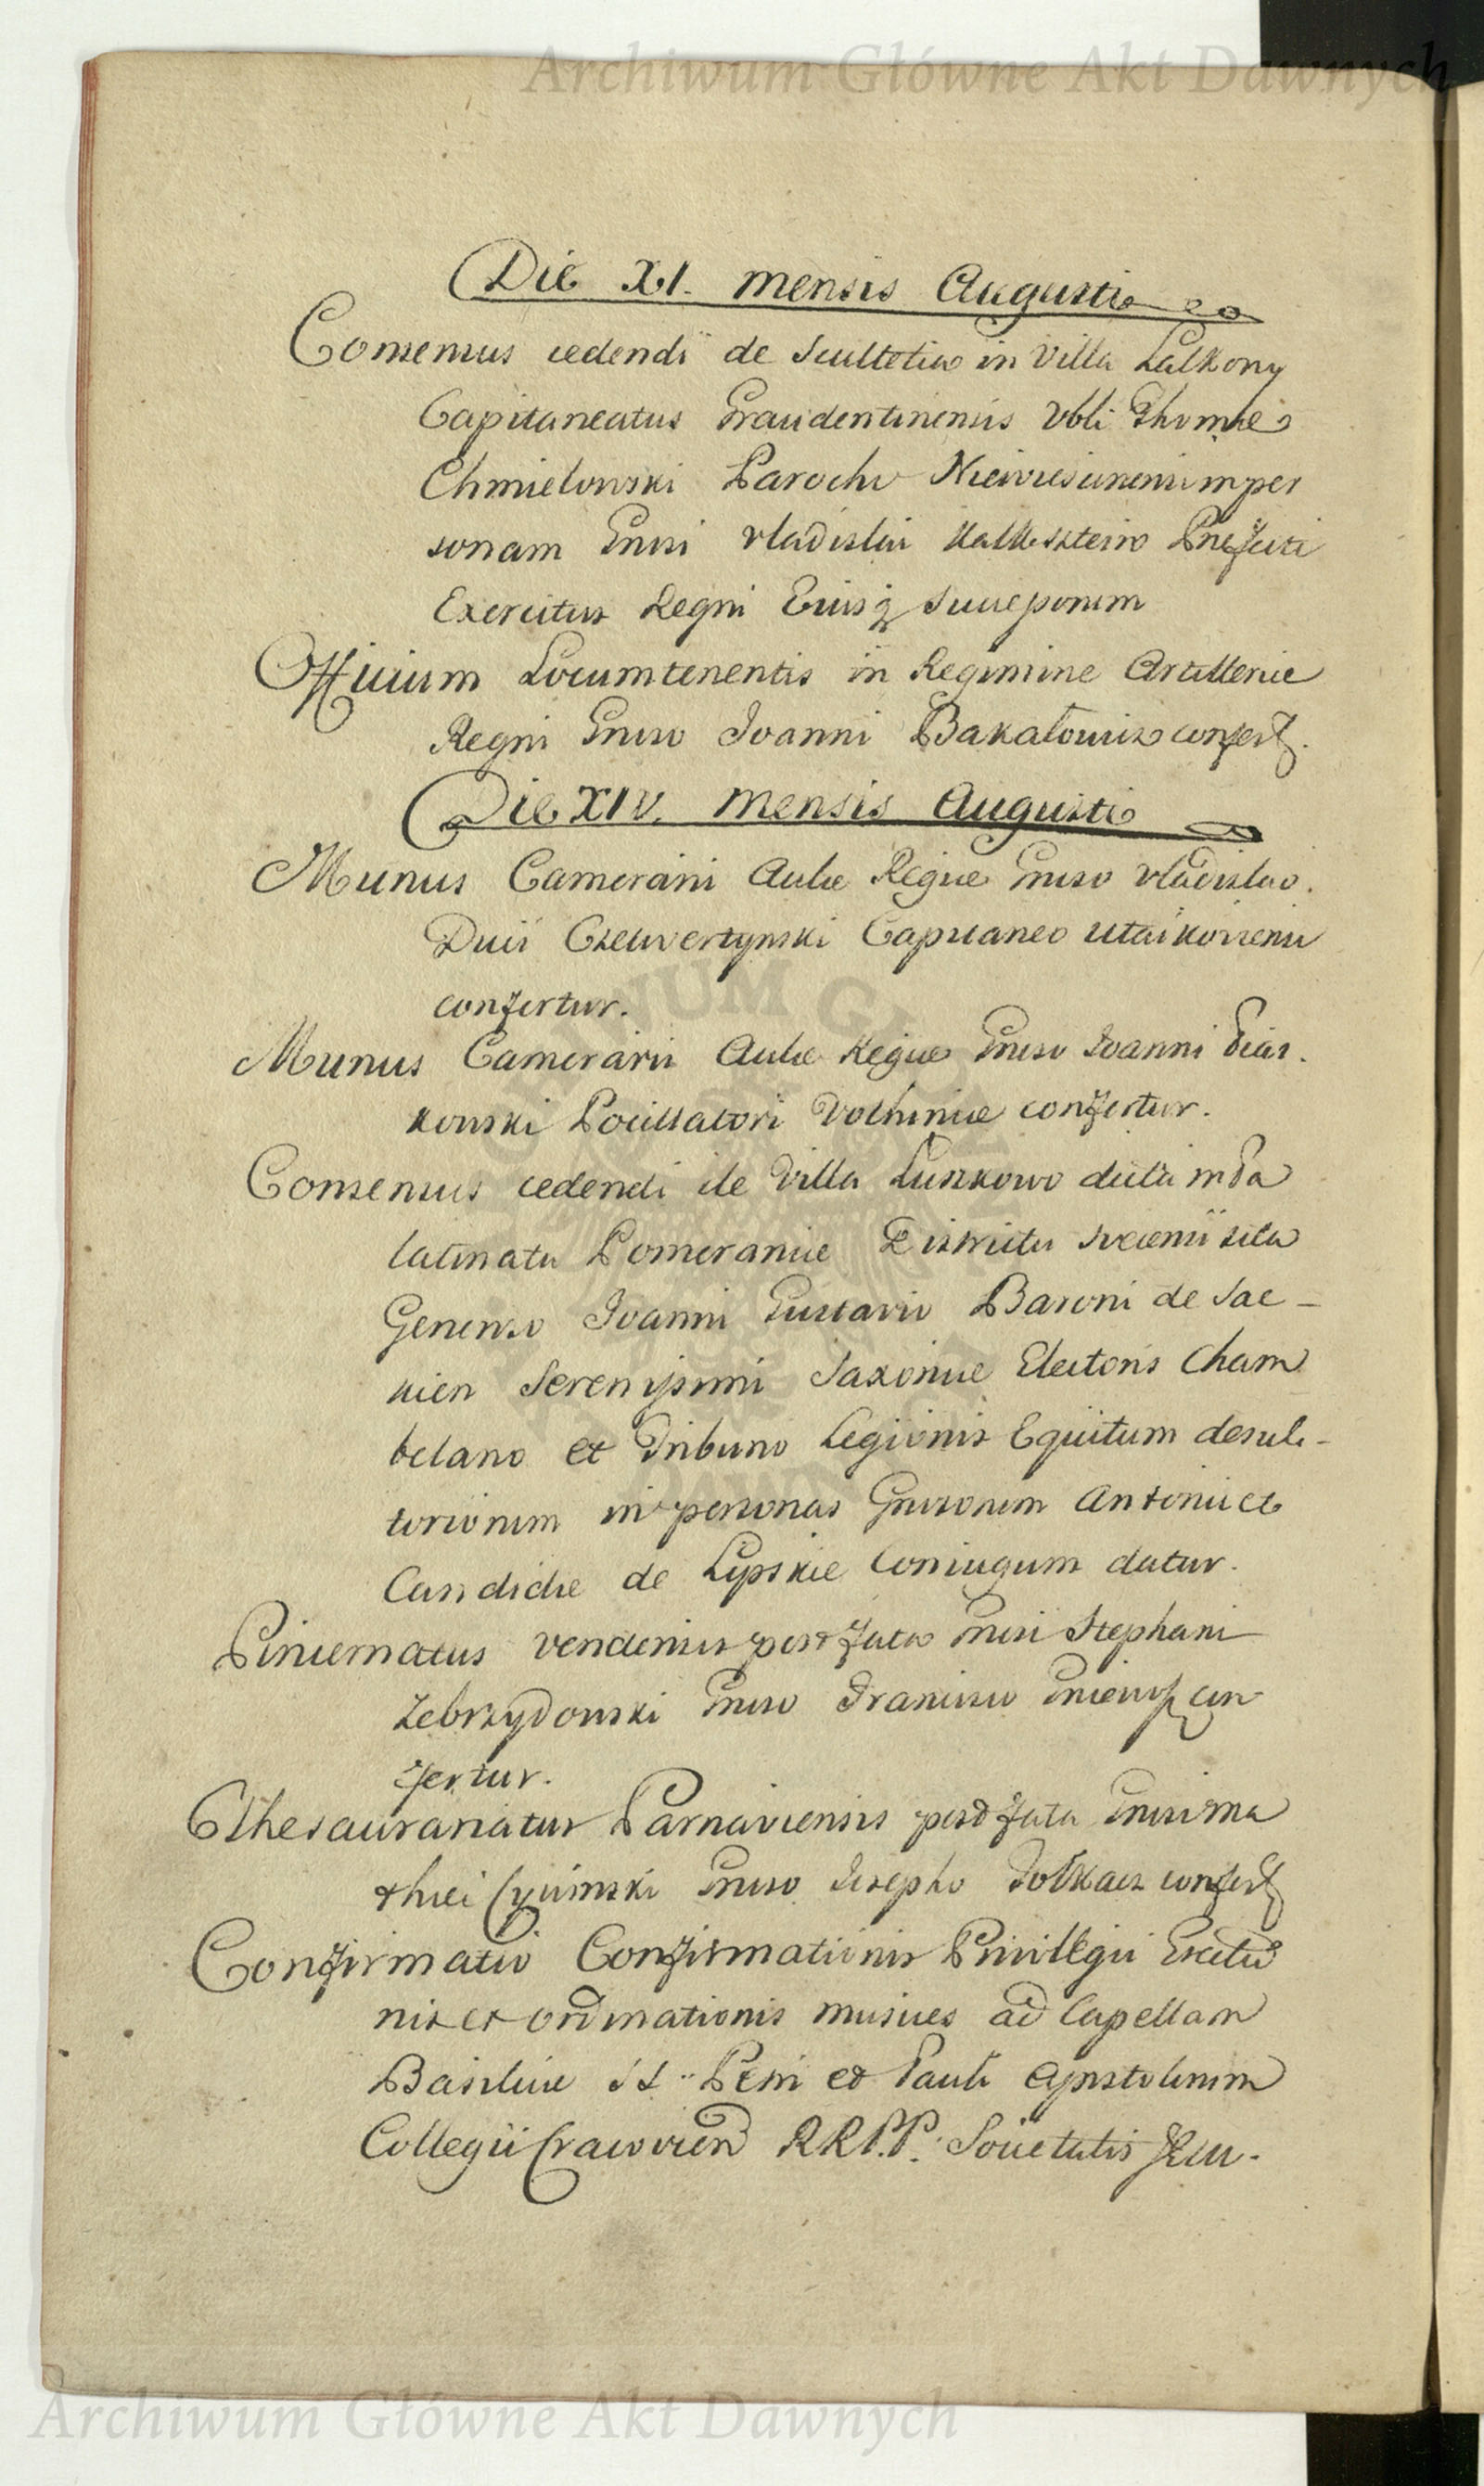 Archiwum Główne Akt Dawnych
Die XI. mensis Augusti
Consensus cedendi de Scultetia in Villa Lalkowy
Capitaneatus Graudentinensis Vbli Thomæ
Chmielowski Parocho Nieiviescinensi in per
sonam Gnsi Vladislai Kalksztein Præfecti
Exercitus Regni Eiusq Successorum
Officium Locumtenentis in Regimine Artilleriæ
Regni Gnso Joanni Bakałowicz confert.
Die XIV. mensis Augusti
Munus Camerarii Aulæ Regiæ Gnso Vladislao
Ducii Czetwertynski Capitaneo Utaikoviensi
confertur.
Munus Camerarii Aulæ Regiæ Gnso Joanni Pias
kowski Pocillatori Volhiniæ confertur.
Consensus cedendi de Villa Luszkowo dicta in Pa
latinatu Pomeraniæ Districtu Svecensi sita
Generoso Joanni Gustavo Baroni de Sac-
kien Serenissimi Saxoniæ Electoris Cham
belano et Tribuno Legionis Equitum desul-
toriorum in personas Gnsorum Antonii et
Candidæ de Lipskie Coniugum datur.
Pincernatus Vendensis post fata Gnsi Stephani
Zebrzydowski Gnso Francisco con
fertur.
Thesaurariatus Parnaviensis post fata Gnsi Ma
thæi Gnso Josepho Tołkacz confert
Confirmatio Confirmationis Privilegii Erectio
nis et ordinationis musices ad Capellam
Basilicæ SS. Petri et Pauli Apostolorum
Collegii Cracovien RR.PP. Societatis Jesu.
Archiwum Główne Akt Dawnych